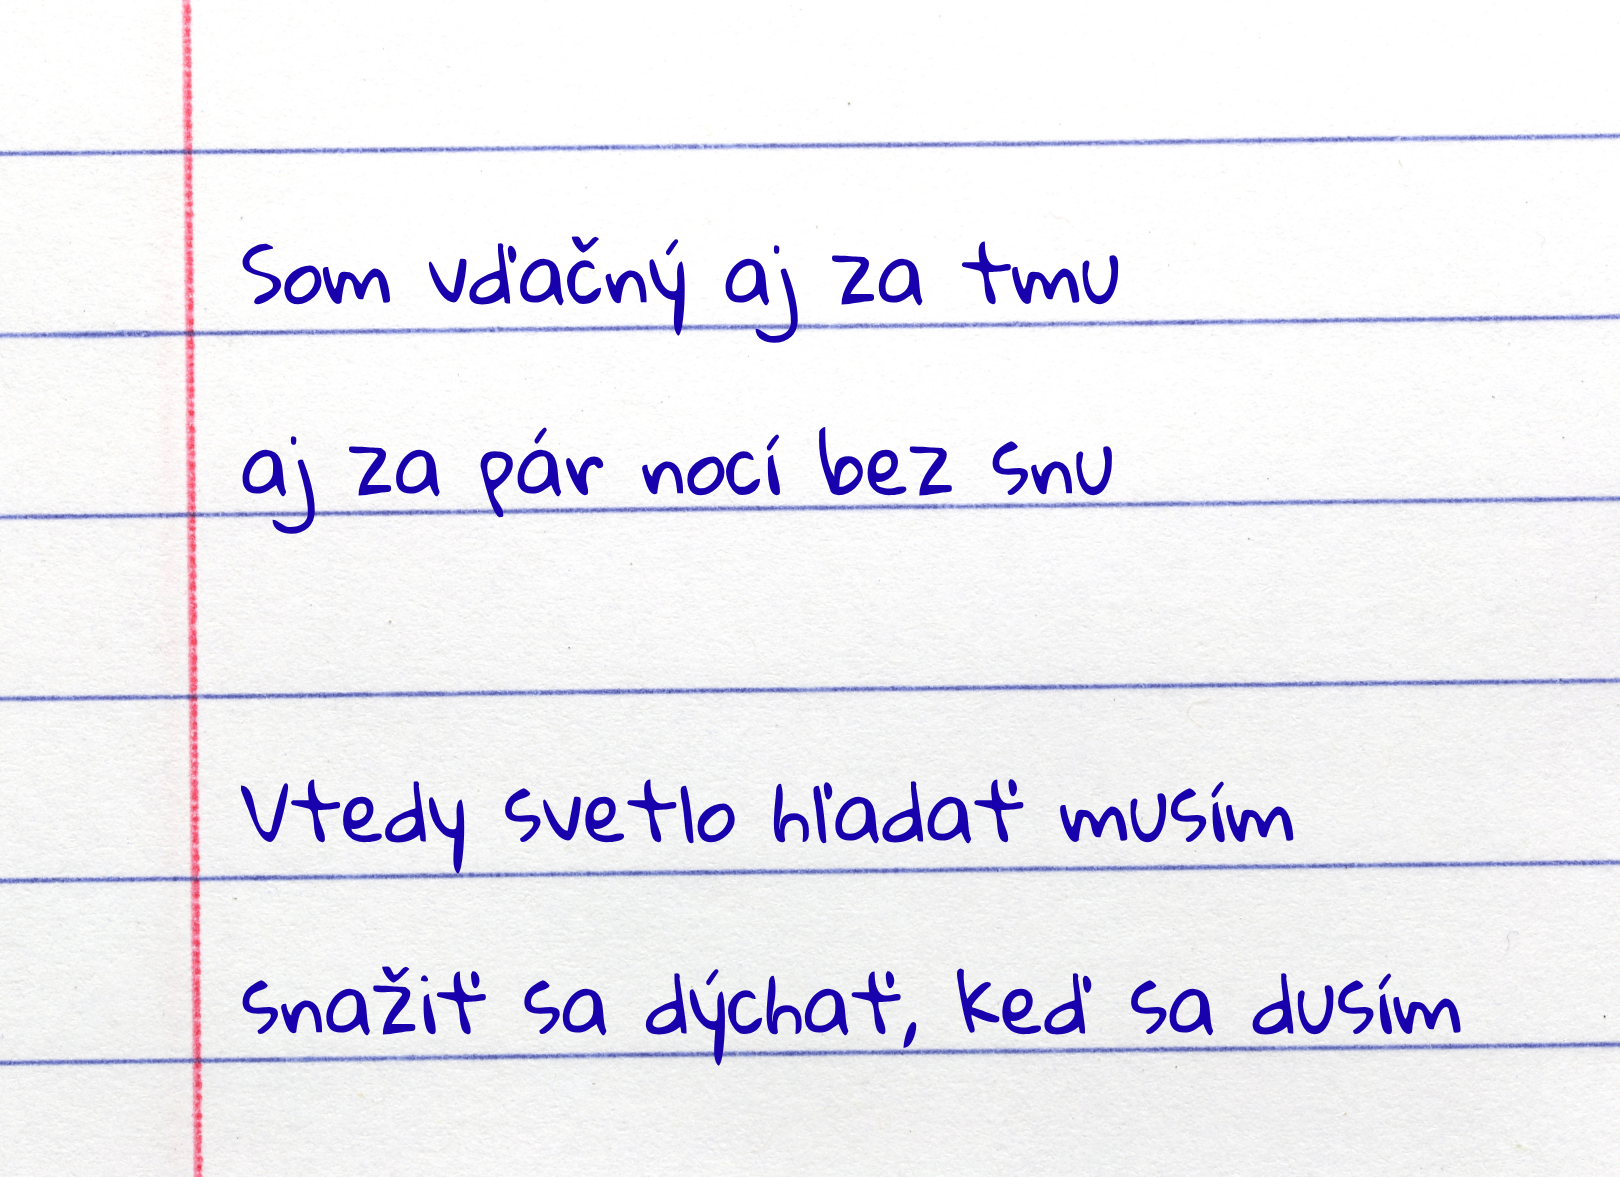 Som vďačný aj za tmu
aj za pár nocí bez snu
Vtedy svetlo hľadať musím
snažiť sa dýchať, keď sa dusím